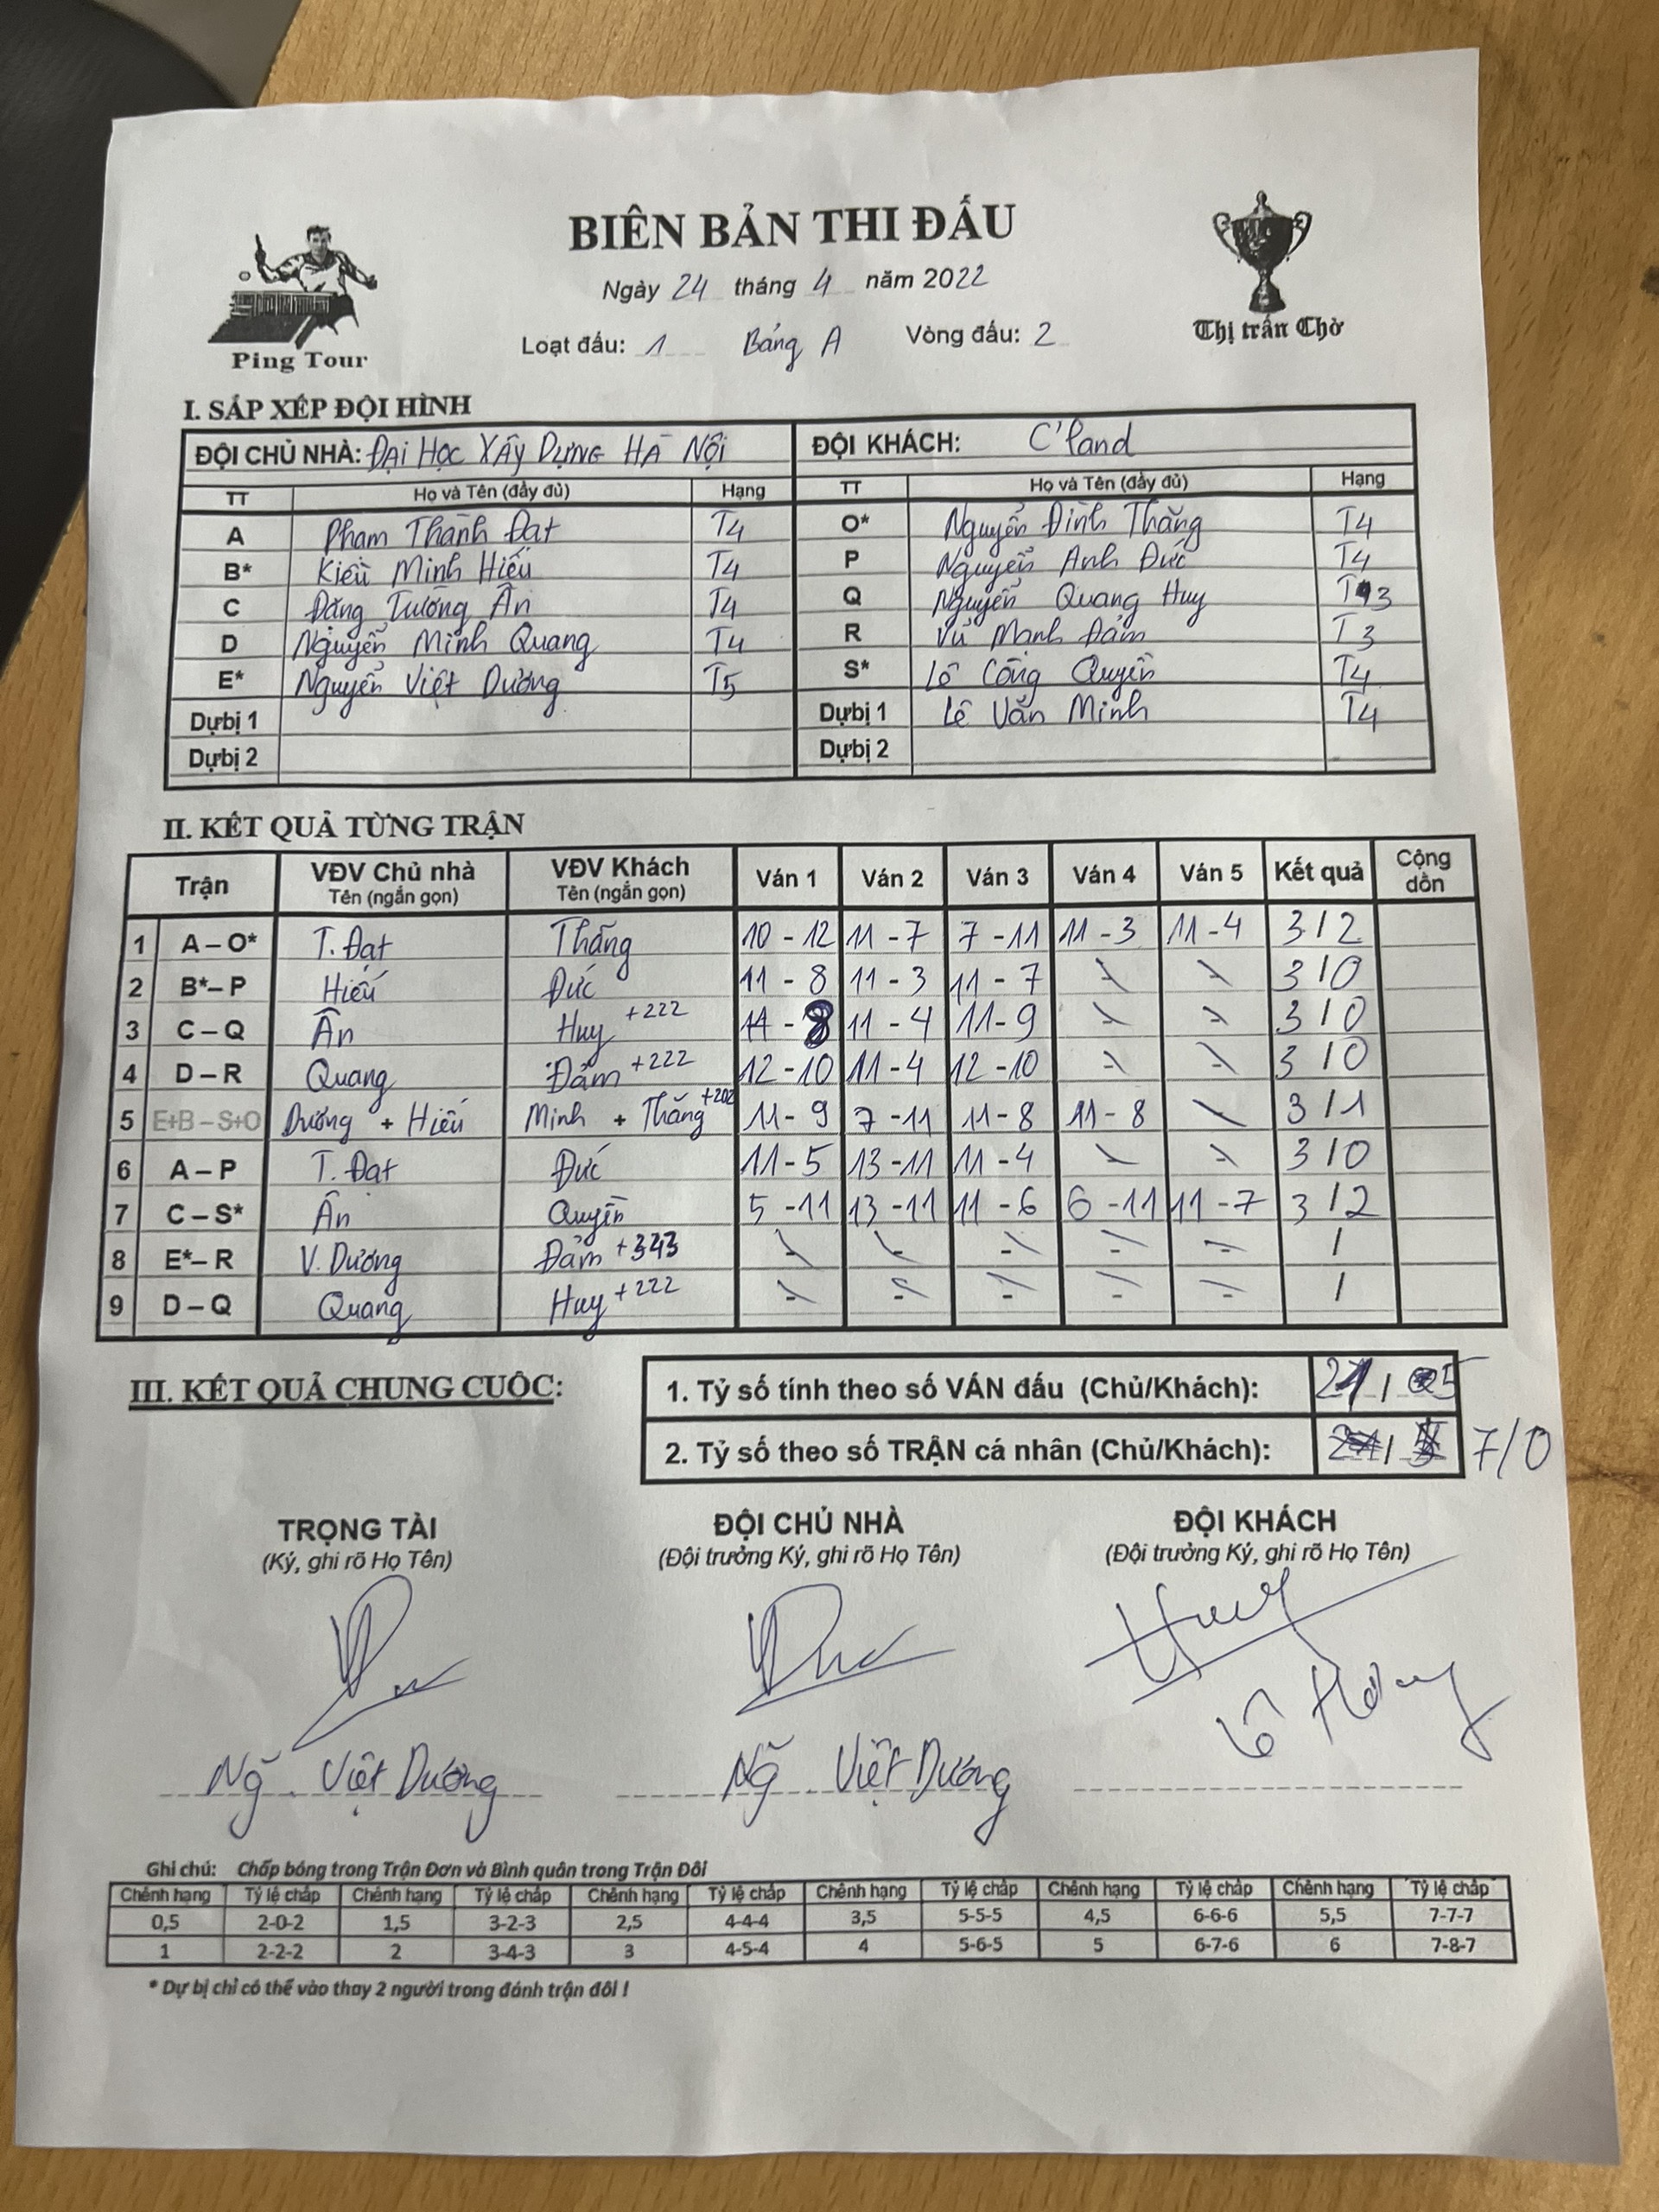 BIÊN BẢN THI ĐẤU
Ngày 24 tháng 4 năm 2022
Loạt đấu: 1 Bảng A Vòng đấu: 2
Ping Tour
Thị trấn Chờ
I. SẮP XẾP ĐỘI HÌNH
ĐỘI CHỦ NHÀ: ĐẠI HỌC XÂY DỰNG HÀ NỘI ĐỘI KHÁCH: C'land
TT Họ và Tên (đầy đủ) Hạng TT Họ và Tên (đầy đủ) Hạng
A Phạm Thành Đạt T4 O* Nguyễn Đình Thắng T4
B* Kiều Minh Hiếu T4 P Nguyễn Anh Đức T4
C Đặng Tường Ân T4 Q Nguyễn Quang Huy T3
D Nguyễn Minh Quang T4 R Vũ Mạnh Đảm T3
E* Nguyễn Việt Dương T5 S* Lê Công Quyền T4
Dự bị 1 Dự bị 1 Lê Văn Minh T4
Dự bị 2 Dự bị 2
II. KẾT QUẢ TỪNG TRẬN
Trận VĐV Chủ nhà VĐV Khách Ván 1 Ván 2 Ván 3 Ván 4 Ván 5 Kết quả Cộng dồn
Tên (ngắn gọn) Tên (ngắn gọn)
1 A – O* T. Đạt Thắng 10 - 12 11 - 7 7 - 11 11 - 3 11 - 4 3 / 2
2 B* – P Hiếu Đức 11 - 8 11 - 3 11 - 7 - - 3 / 0
3 C – Q Ân Huy +222 11 - 8 11 - 4 11 - 9 - - 3 / 0
4 D – R Quang Đảm +222 12 - 10 11 - 4 12 - 10 - - 3 / 0
5 E+B – S+O Dương + Hiếu Minh + Thắng +202 11 - 9 7 - 11 11 - 8 11 - 8 3 / 1
6 A – P T. Đạt Đức 11 - 5 13 - 11 11 - 4 - - 3 / 0
7 C – S* Ân Quyền 5 - 11 13 - 11 11 - 6 6 - 11 11 - 7 3 / 2
8 E* – R V. Dương Đảm +343 - - - - - /
9 D – Q Quang Huy +222 - - - - - /
III. KẾT QUẢ CHUNG CUỘC:
1. Tỷ số tính theo số VÁN đấu (Chủ/Khách): 21 / 5
2. Tỷ số theo số TRẬN cá nhân (Chủ/Khách): 7/0
TRỌNG TÀI ĐỘI CHỦ NHÀ ĐỘI KHÁCH
(Ký, ghi rõ Họ Tên) (Đội trưởng Ký, ghi rõ Họ Tên) (Đội trưởng Ký, ghi rõ Họ Tên)
Huy
Ng̃. Việt Dương Ng̃. Việt Dương
Ghi chú: Chấp bóng trong Trận Đơn và Bình quân trong Trận Đôi
Chênh hạng Tỷ lệ chấp Chênh hạng Tỷ lệ chấp Chênh hạng Tỷ lệ chấp Chênh hạng Tỷ lệ chấp Chênh hạng Tỷ lệ chấp Chênh hạng Tỷ lệ chấp
0,5 2-0-2 1,5 3-2-3 2,5 4-4-4 3,5 5-5-5 4,5 6-6-6 5,5 7-7-7
1 2-2-2 2 3-4-3 3 4-5-4 4 5-6-5 5 6-7-6 6 7-8-7
* Dự bị chỉ có thể vào thay 2 người trong đánh trận đôi !